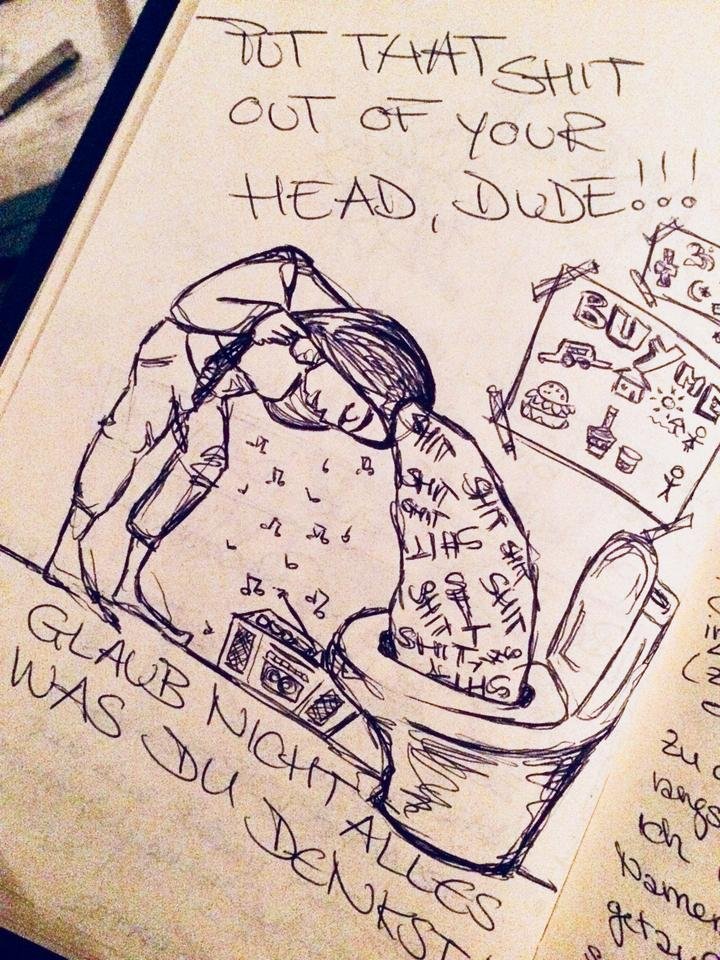 PUT THAT SHIT
OUT OF YOUR
HEAD, DUDE!!!
BUY ME
SHIT
SHIT SHIT
SHIT
SHIT SHIT
SHIT SHIT
SHIT SHIT
SHIT
SHIT
GLAUB NICHT ALLES
WAS DU DENKST!
zu
ich